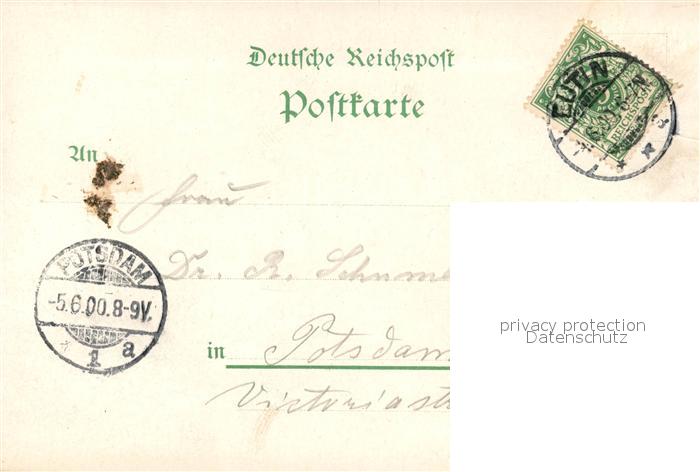 Deutsche Reichspost
Postkarte
EUTIN
REICHSPOST
An
Frau
POTSDAM
-5.6.00.8-9V.
* 1 a
Dr. R.
in Potsdam
privacy protection
Datenschutz